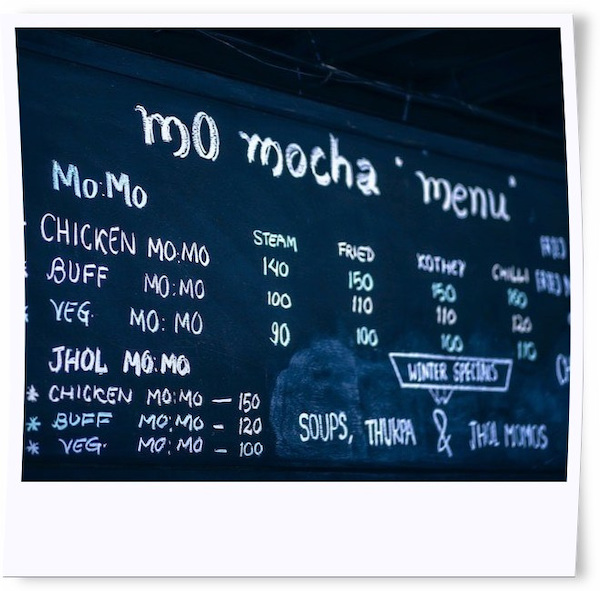 mo mocha 'menu'
Mo:Mo
STEAM FRIED KOTHEY CHILLI FRIED
CHICKEN MO:MO 140 150 150 160 FRIED
BUFF MO:MO 100 110 110 120
VEG. MO:MO 90 100 100 110
JHOL MO:MO
* CHICKEN MO:MO — 150
* BUFF MO:MO — 120
* VEG. MO:MO — 100
WINTER SPECIALS
SOUPS, THUKPA & JHOL MOMOS